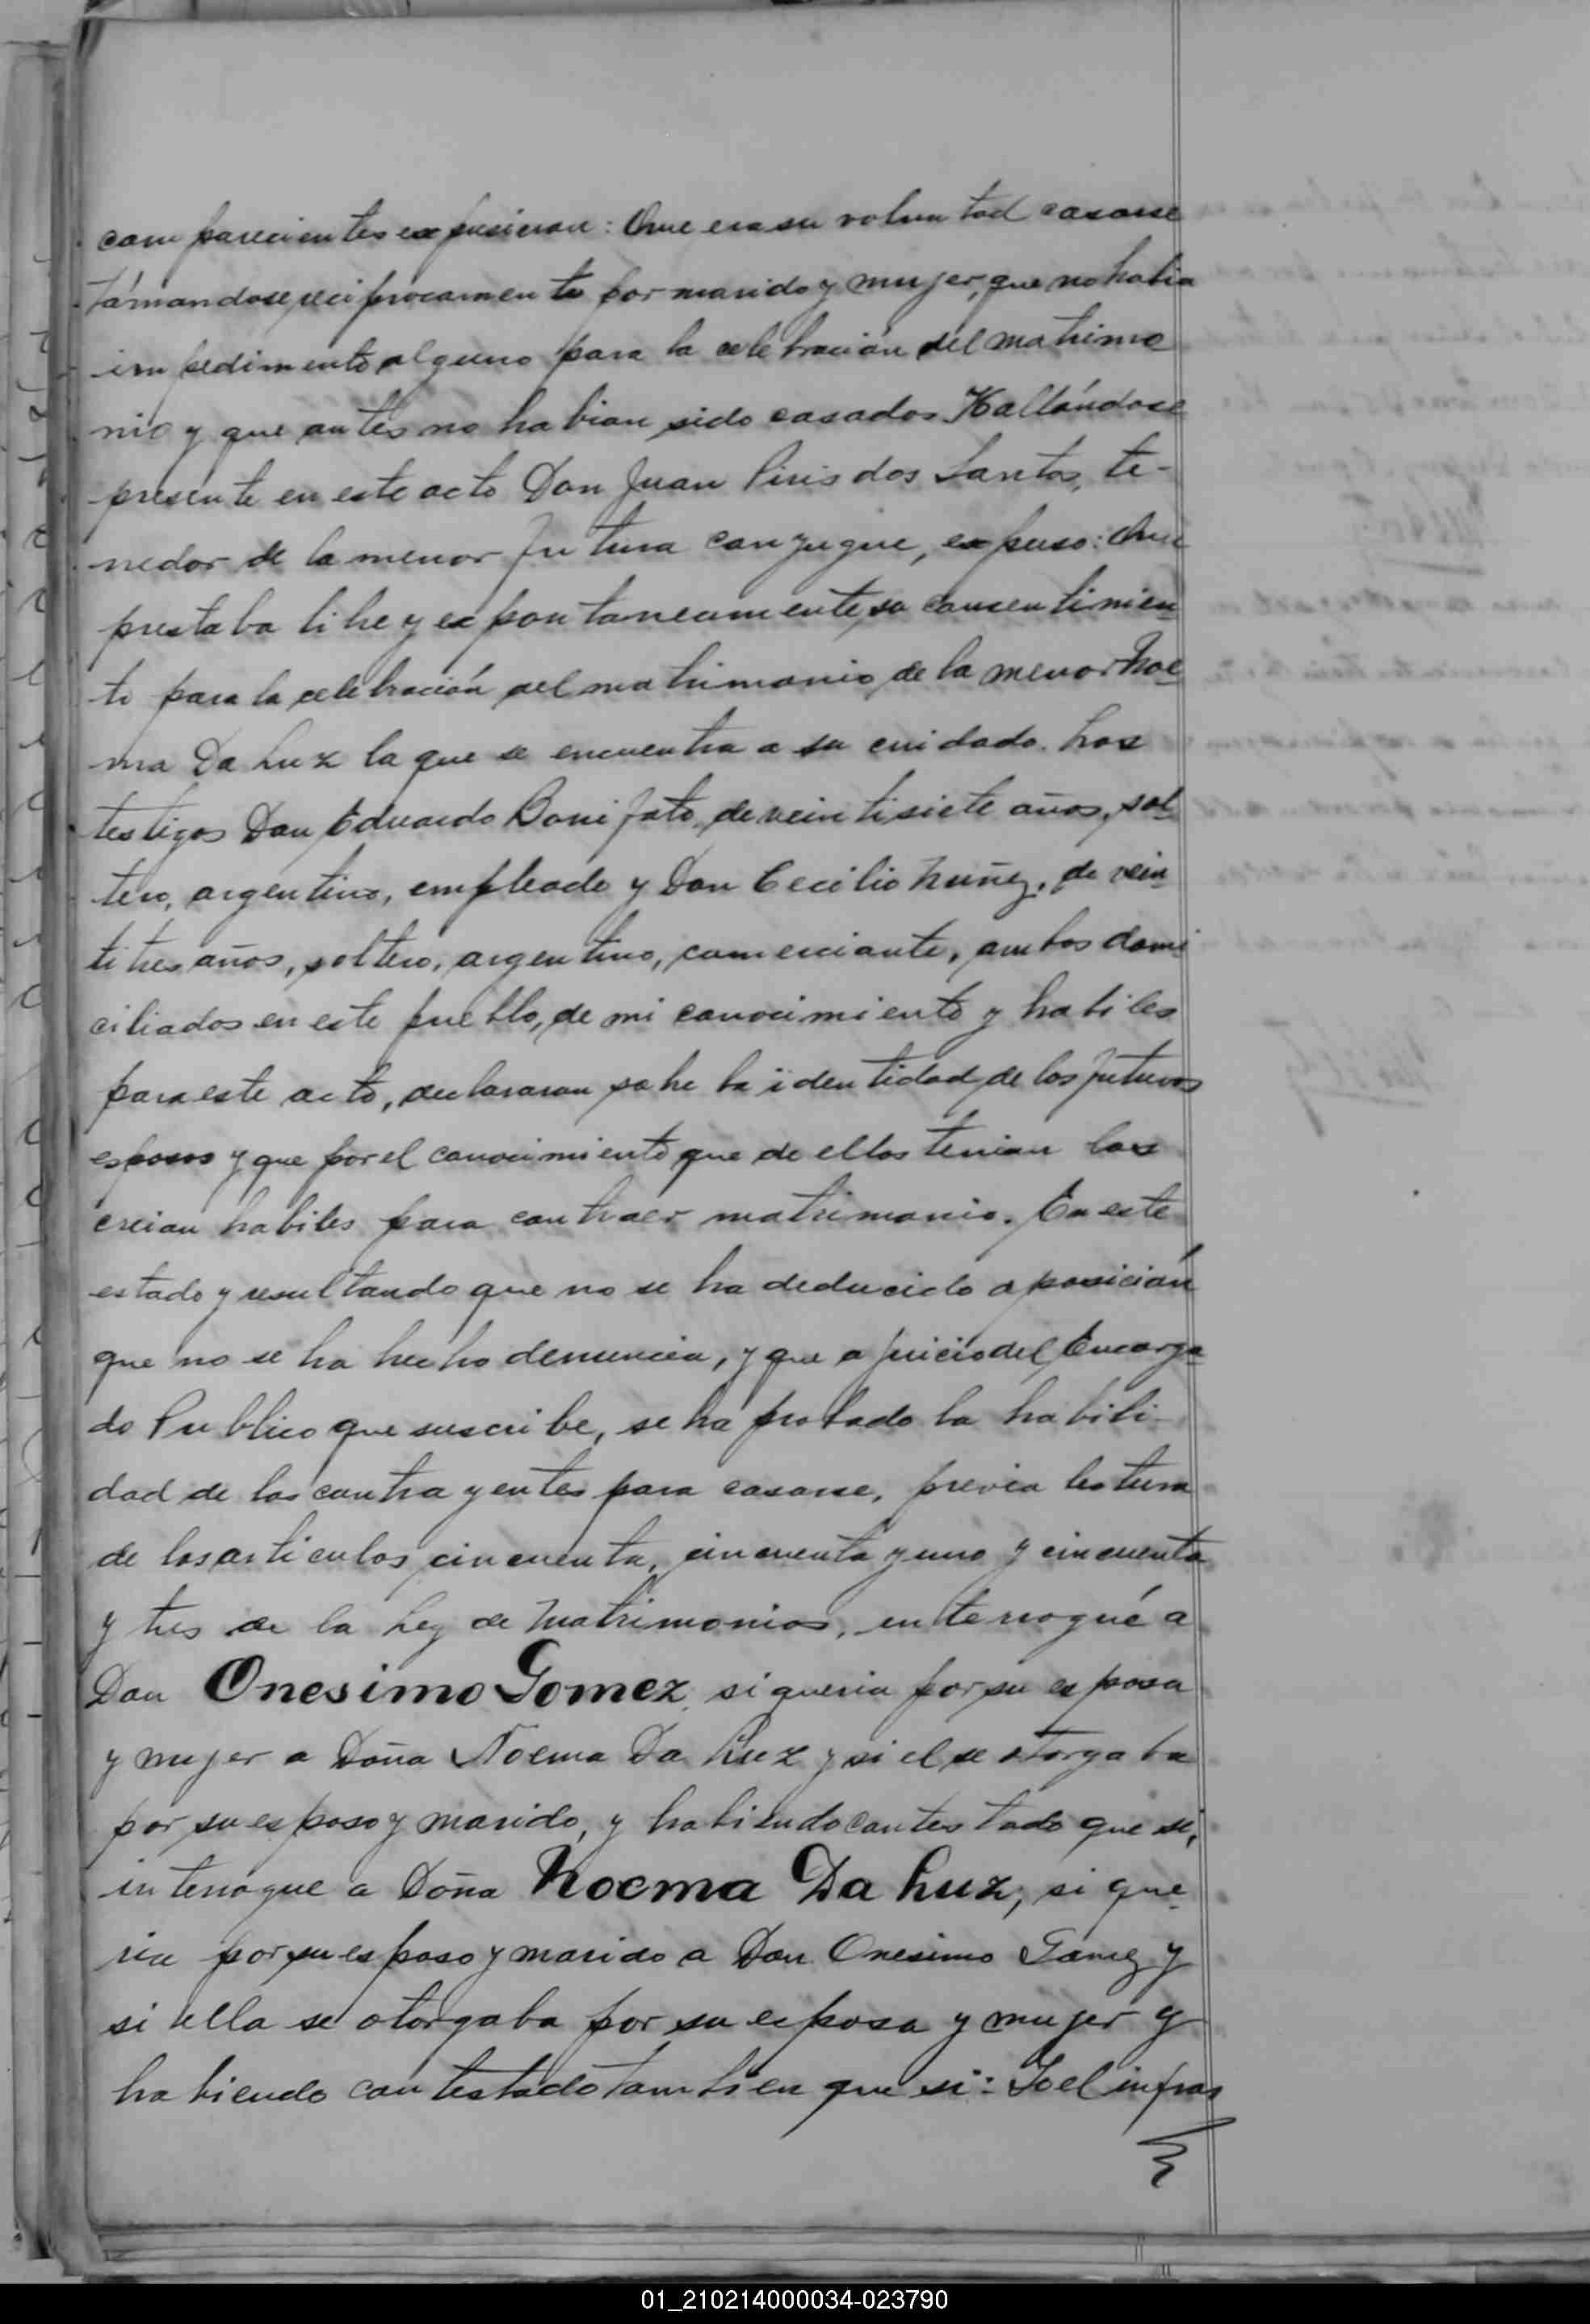 comparecientes expusieron: Que era su voluntad casarse
tomandose reciprocamente por marido y mujer, que no habia
impedimento alguno para la celebración del matrimo
nio y que antes no habian sido casados. Hallándose
presente en este acto Don Juan Piris dos Santos, te-
nedor de la menor futura conyugue, expuso: Que
prestaba libre y expontaneamente su consentimien-
to para la celebración del matrimonio de la menor Noe-
ma Da Luz la que se encuentra a su cuidado. Los
testigos Don Eduardo Bonifato, de veintisiete años, sol-
tero, argentino, empleado y Don Cecilio Nuñez, de vein-
titres años, soltero, argentino, comerciante, ambos domi
ciliados en este pueblo, de mi conocimiento y habiles
para este acto, declararon sobre la identidad de los futuros
esposos y que por el conocimiento que de ellos tenian los
creian habiles para contraer matrimonio. En este
estado y resultando que no se ha deducido oposición
que no se ha hecho denuncia, y que a juicio del Encarga-
do Publico que suscribe, se ha probado la habili-
dad de los contrayentes para casarse, previa lectura
de los articulos cincuenta, cincuenta y uno y cincuenta
y tres de la Ley de Matrimonios, interrogué a
Don Onesimo Gomez, si queria por su esposa
y mujer a Doña Noema Da Luz y si el se otorgaba
por su esposo y marido, y habiendo contestado que si,
interrogue a Doña Noema Da Luz, si que-
ria por su esposo y marido a Don Onesimo Gomez y
si ella se otorgaba por su esposa y mujer y
habiendo contestado tambien que si: Yo el infras
01_210214000034-023790